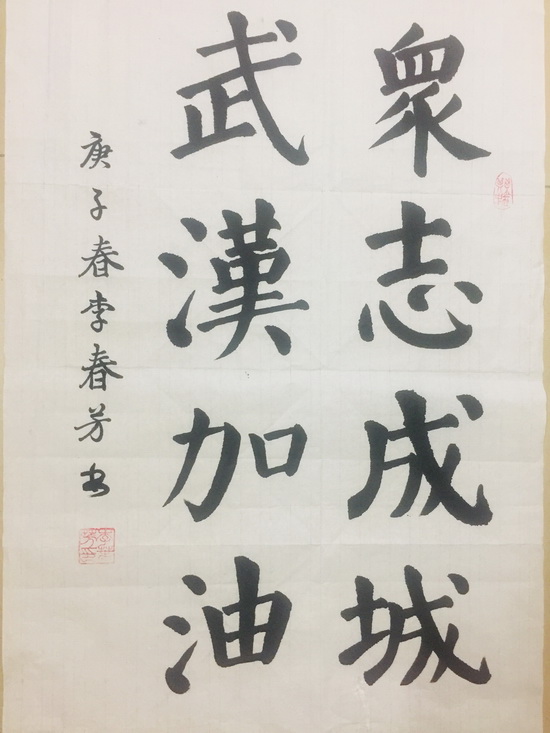 衆志成城
武漢加油
庚子春李春芳书